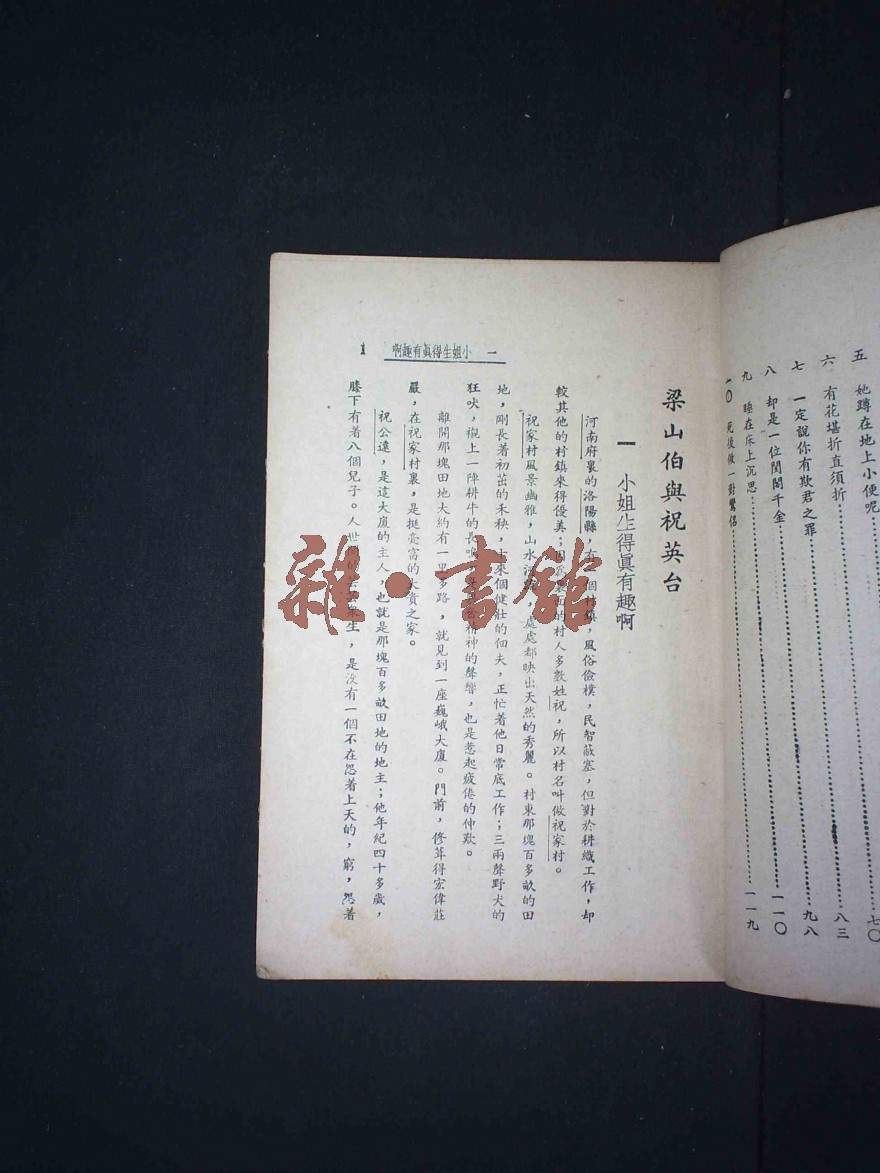 五 她蹲在地上小便呢……七〇
六 有花堪折直須折……八三
七 一定說你有欺君之罪……九八
八 却是一位閨閣千金……一一〇
九 睡在床上沉思……一一九
一〇 死後做一對鸞侶
梁山伯與祝英台
一 小姐生得眞有趣啊
河南府裏的洛陽縣,有 個村鎮,風俗儉樸,民智蔽塞,但對於耕織工作,却
較其他的村鎮來得優美; 的村人多數姓祝,所以村名叫做祝家村。
祝家村風景幽雅,山水 ,處處都映出天然的秀麗。村東那塊百多畝的田
地,剛長着初茁的禾秧,十來個健壯的佃夫,正忙着他日常底工作;三兩聲野犬的
狂吠,襯上一陣耕牛的長鳴, 精神的聲響,也是惹起疲倦的伸歎。
離開那塊田地大約有一里多路,就見到一座巍峨大廈。門前,修葺得宏偉莊
嚴,在祝家村裏,是挺豪富的大貴之家。
祝公遠,是這大廈的主人,也就是那塊百多畝田地的地主;他年紀四十多歲,
膝下有着八個兒子。人世間 生,是沒有一個不在怨着上天的,窮,怨着
一 小姐生得眞有趣啊 1
雜·書館